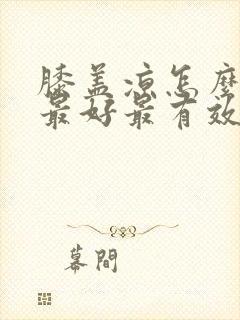 膝盖凉怎麼
最好最有效
幕間